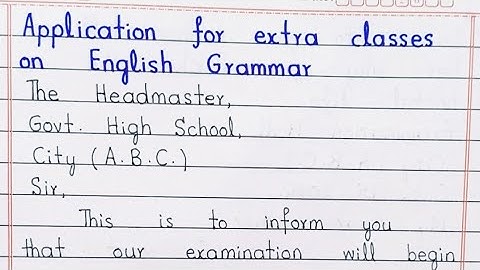 Application for extra classes
on English Grammar
The Headmaster,
Govt. High School,
City (A.B.C.)
Sir,
This is to inform you
that our examination will begin